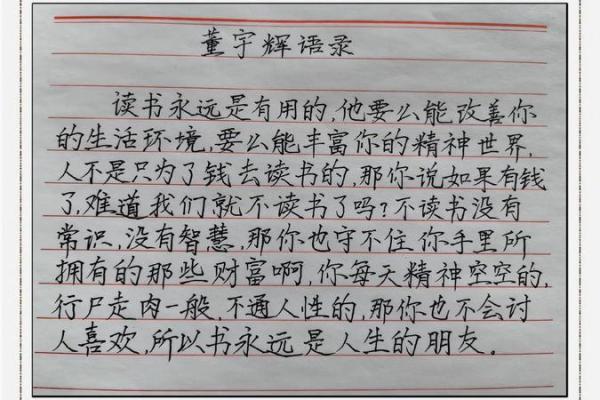 董宇辉语录
读书永远是有用的,他要么能改善你
的生活环境,要么能丰富你的精神世界,
人不是只为了钱去读书的,那你说如果有钱
了,难道我们就不读书了吗?不读书没有
常识,没有智慧,那你也守不住你手里所
拥有的那些财富啊,你每天精神空空的,
行尸走肉一般,不通人性的,那你也不会讨
人喜欢,所以书永远是人生的朋友。